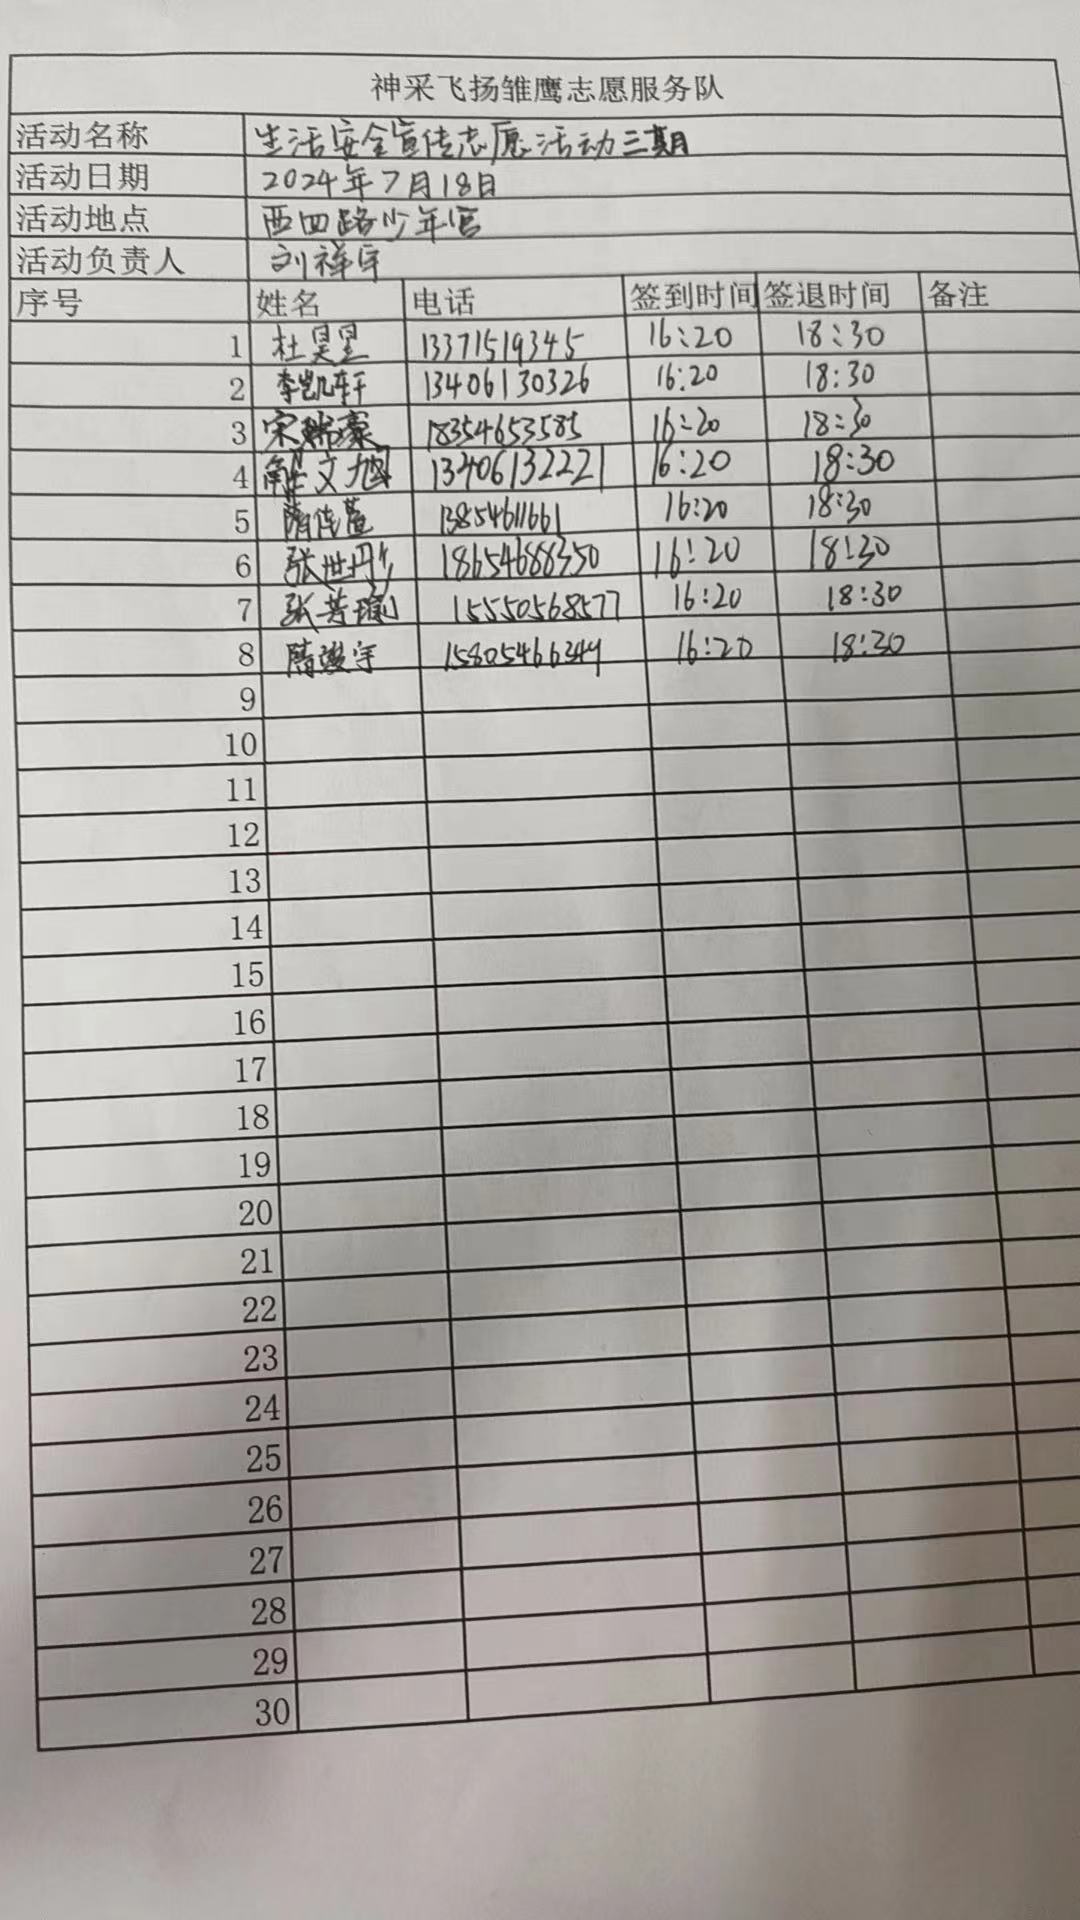 神采飞扬雏鹰志愿服务队
活动名称 生活安全宣传志愿活动三期
活动日期 2024年7月18日
活动地点 西四路少年宫
活动负责人 刘祥宇
序号 姓名 电话 签到时间 签退时间 备注
1 杜昊昱 13371519345 16:20 18:30
2 李凯轩 13406130326 16:20 18:30
3 宋瑞豪 18354653585 16:20 18:30
4 解文旭 13406132221 16:20 18:30
5 隋佳萱 13854611661 16:20 18:30
6 张世彤 18654688350 16:20 18:30
7 张芳瑜 15550568577 16:20 18:30
8 隋浚宇 15805466349 16:20 18:30
9
10
11
12
13
14
15
16
17
18
19
20
21
22
23
24
25
26
27
28
29
30